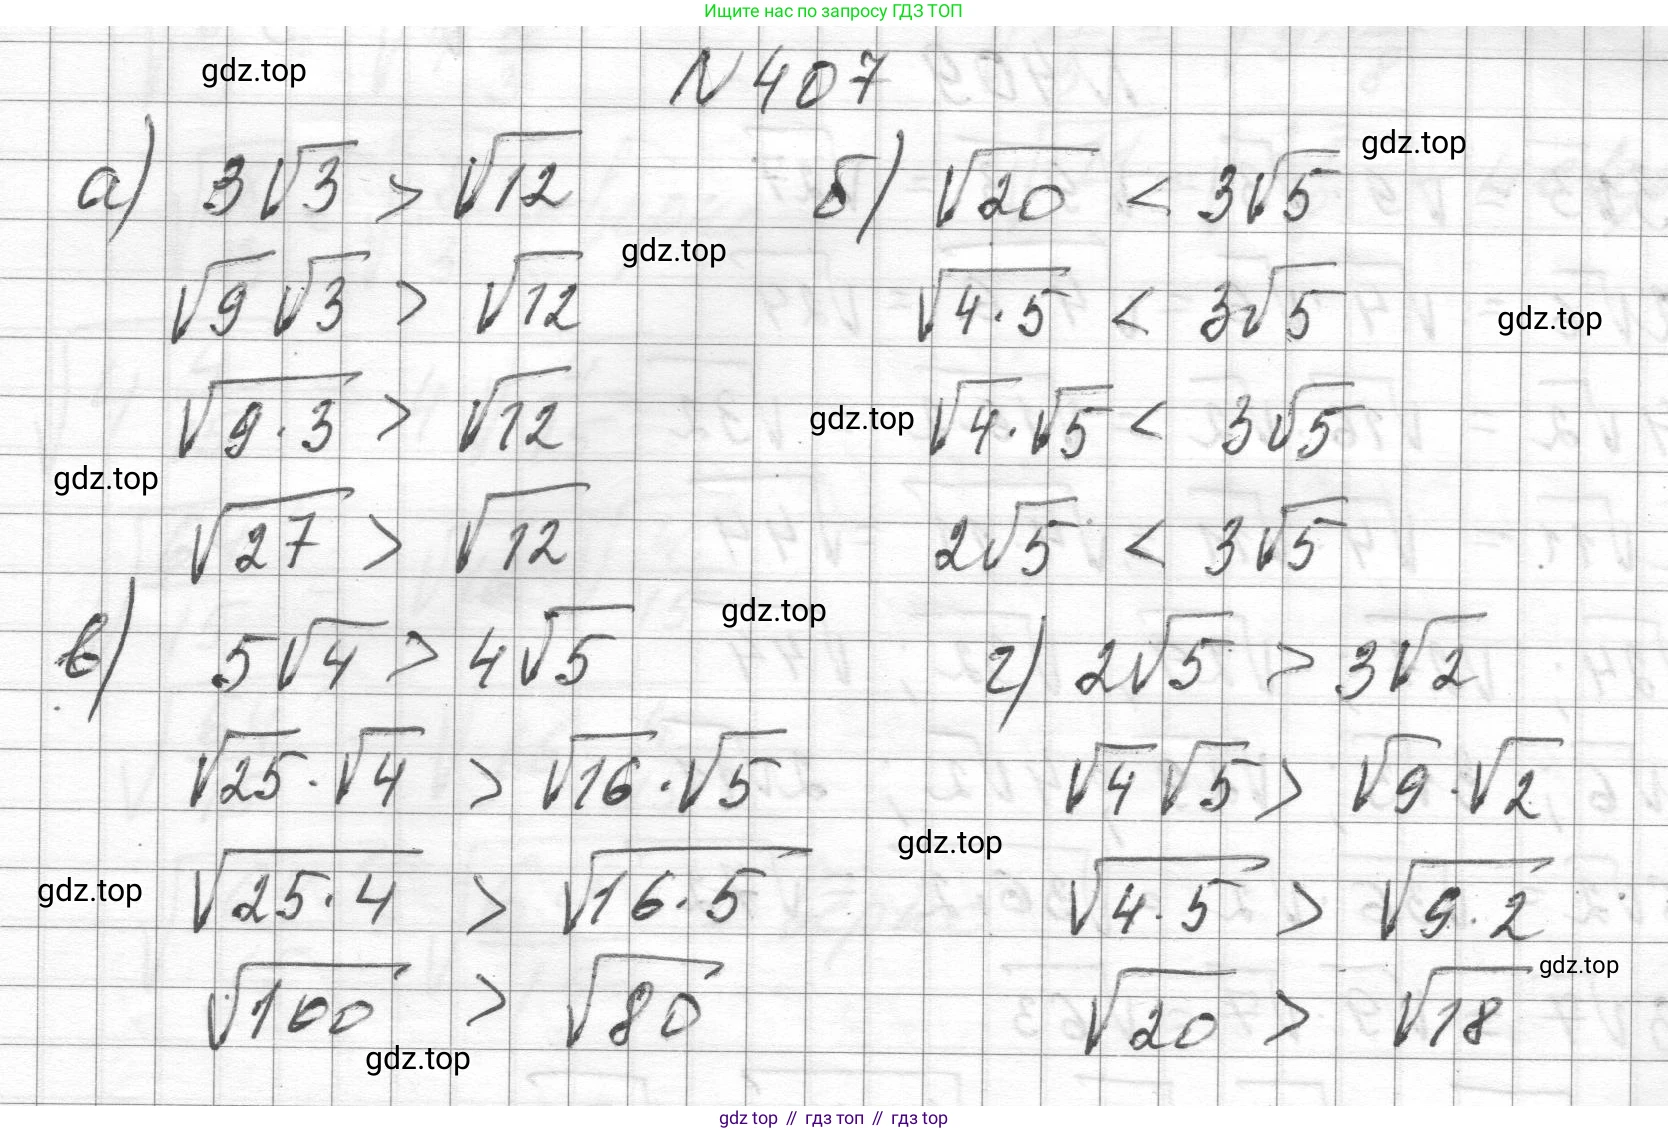 Ищите нас по запросу ГДЗ ТОП
gdz.top
N 407
а) 3√3 > √12
√9 √3 > √12
√(9 · 3) > √12
√27 > √12
б) √20 < 3√5
√(4 · 5) < 3√5
√4 · √5 < 3√5
2√5 < 3√5
в) 5√4 > 4√5
√25 · √4 > √16 · √5
√(25 · 4) > √(16 · 5)
√100 > √80
г) 2√5 > 3√2
√4 √5 > √9 · √2
√(4 · 5) > √(9 · 2)
√20 > √18
gdz.top
gdz.top
gdz.top
gdz.top
gdz.top
gdz.top
gdz.top
gdz.top
gdz.top
gdz.top
gdz top // гдз топ // гдз top